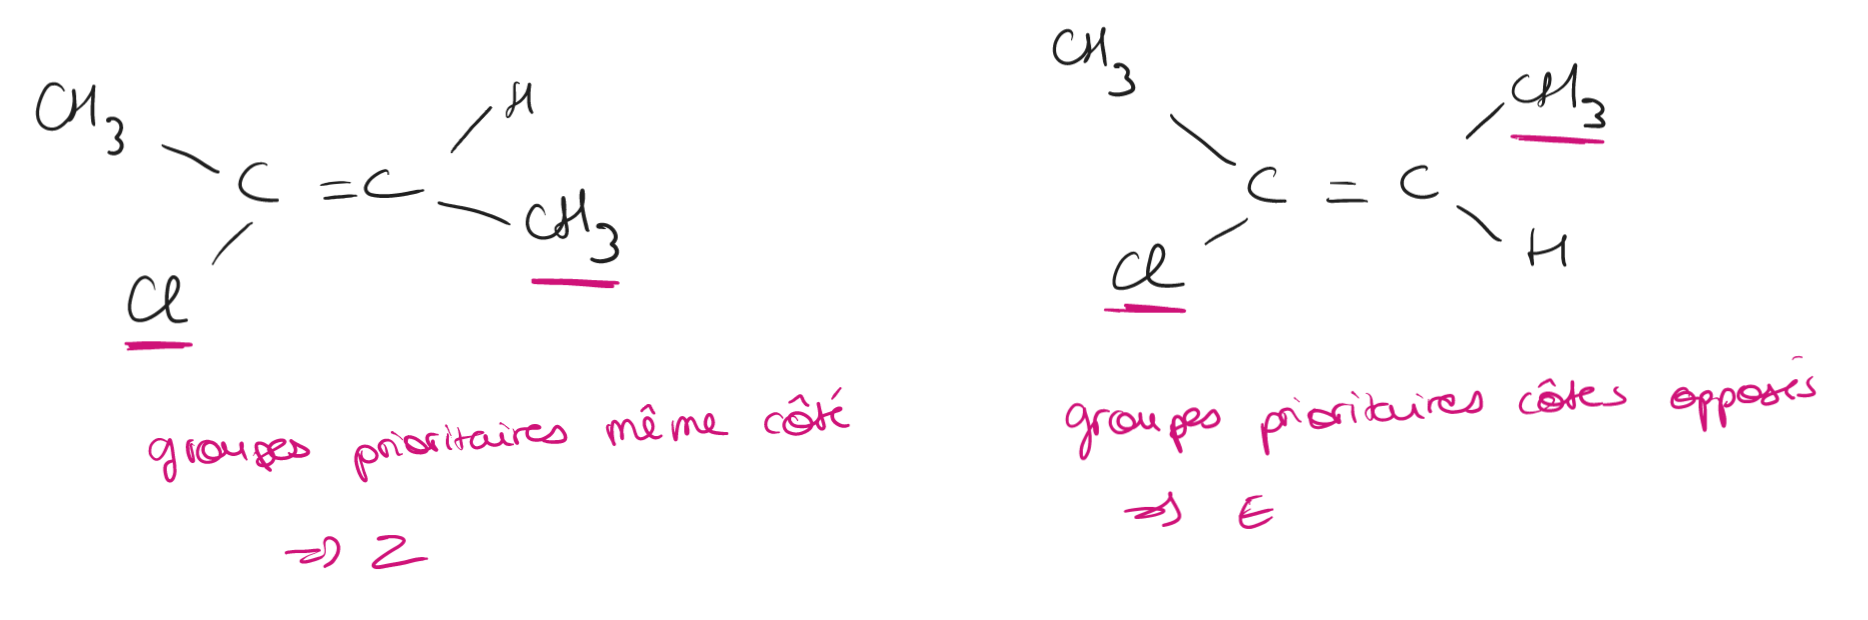 CH3 H
C = C
Cl CH3
groupes prioritaires même côté
⇒ Z
CH3 CH3
C = C
Cl H
groupes prioritaires côtes opposés
⇒ E